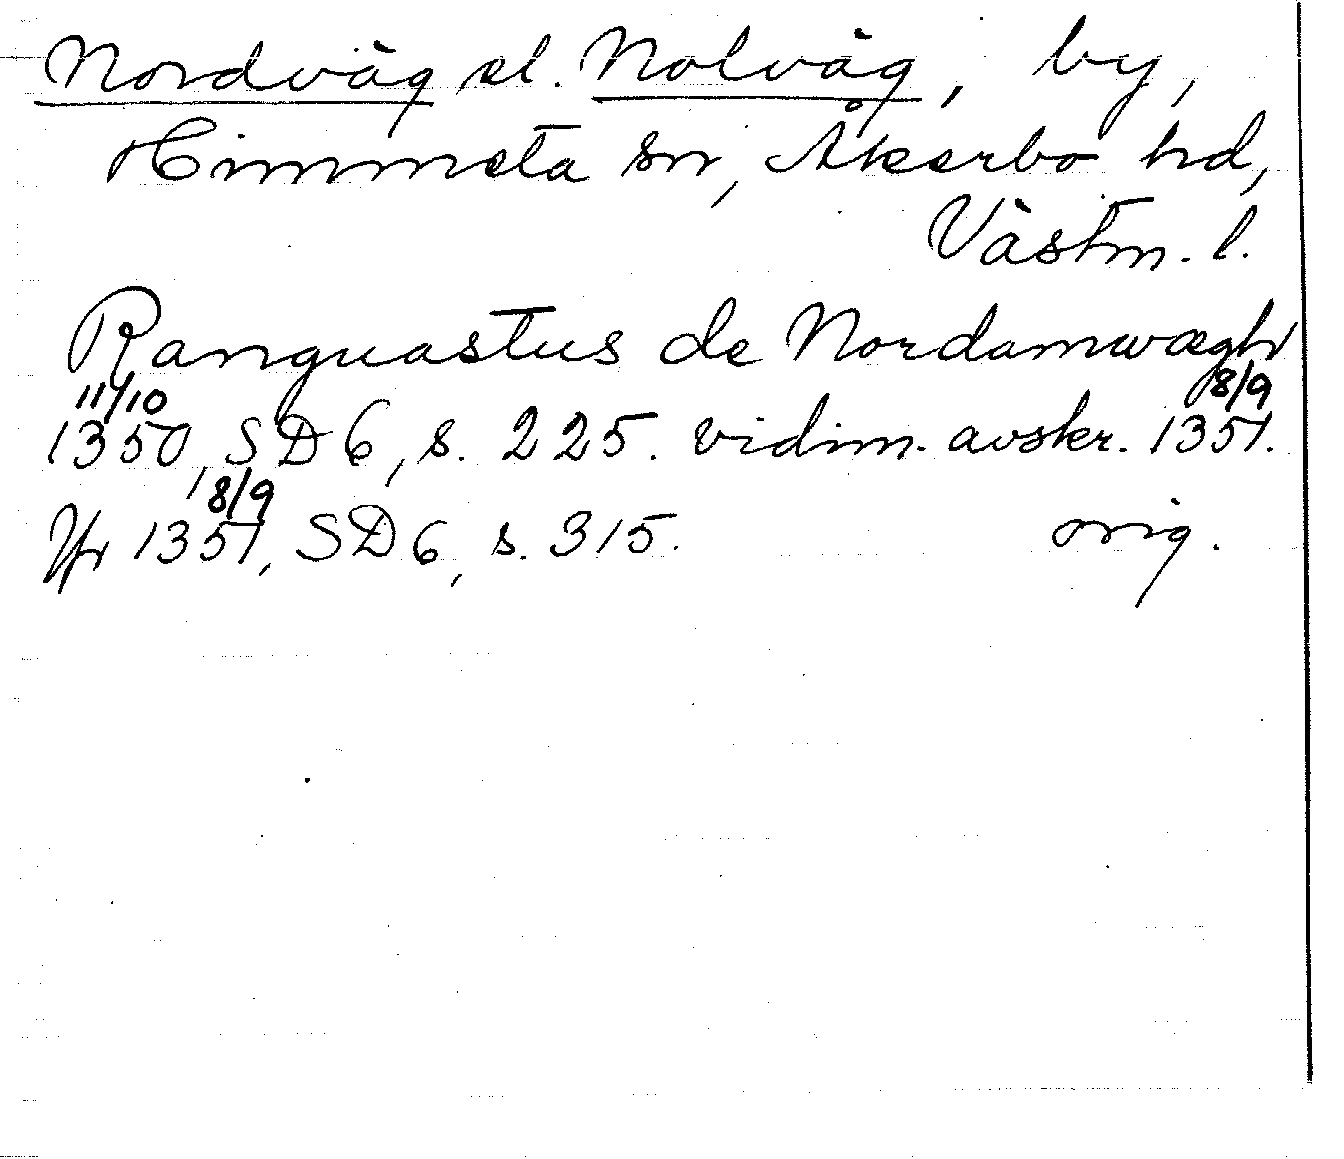 Nordväg el. Nolväg, by,
Himmeta sn, Åkerbo hd,
Västm. l.
Ranguastus de Nordamwægh
11/10 8/9
1350, SD 6, s. 225. vidim. avskr. 1351.
8/9
Jfr 1351, SD 6, s. 315. orig.